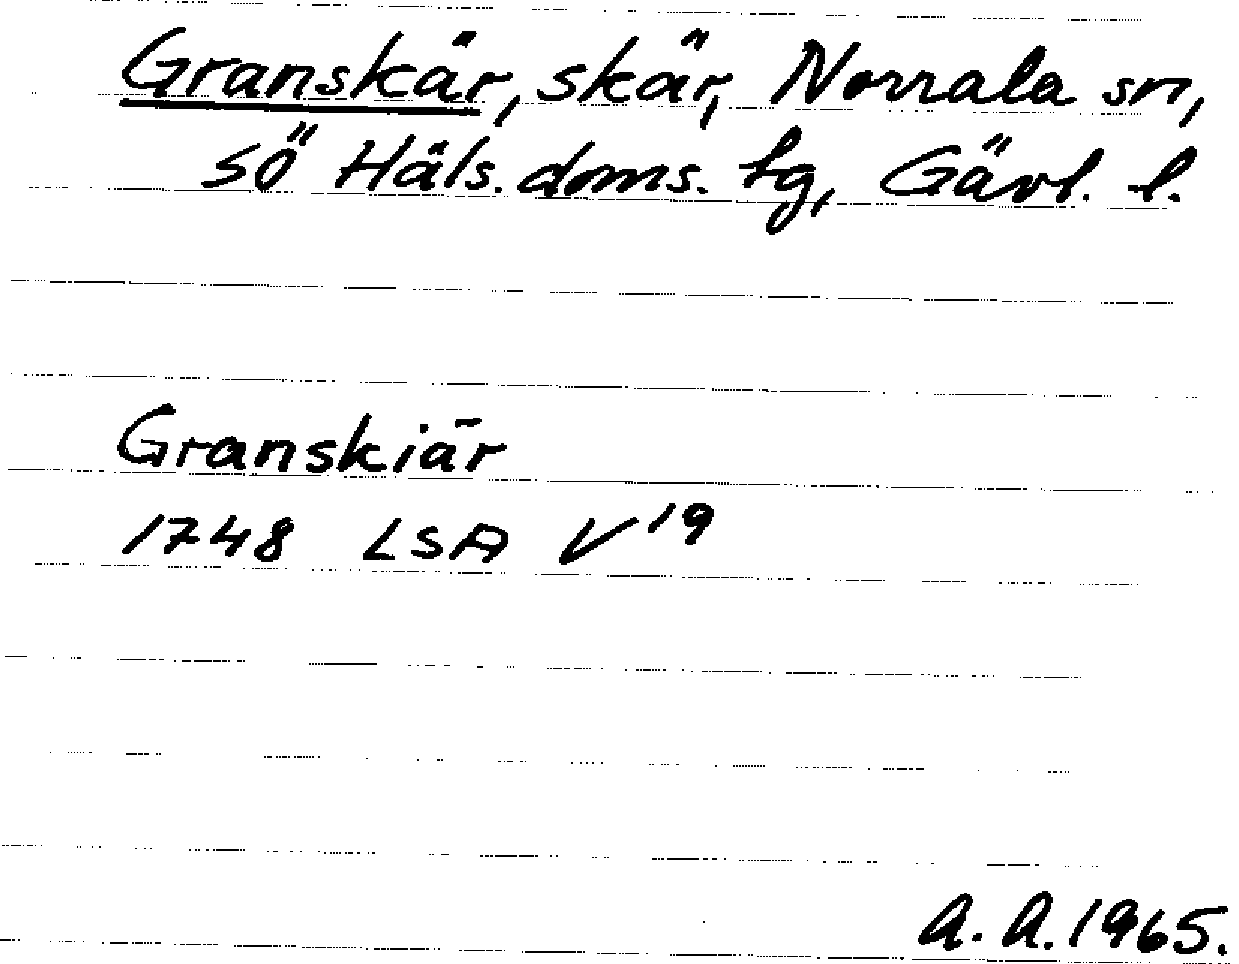 Granskär, skär, Norrala sn,
sö Häls. doms. tg, Gävl. l.
Granskiär
1748 LSA V 19
A. A. 1965.